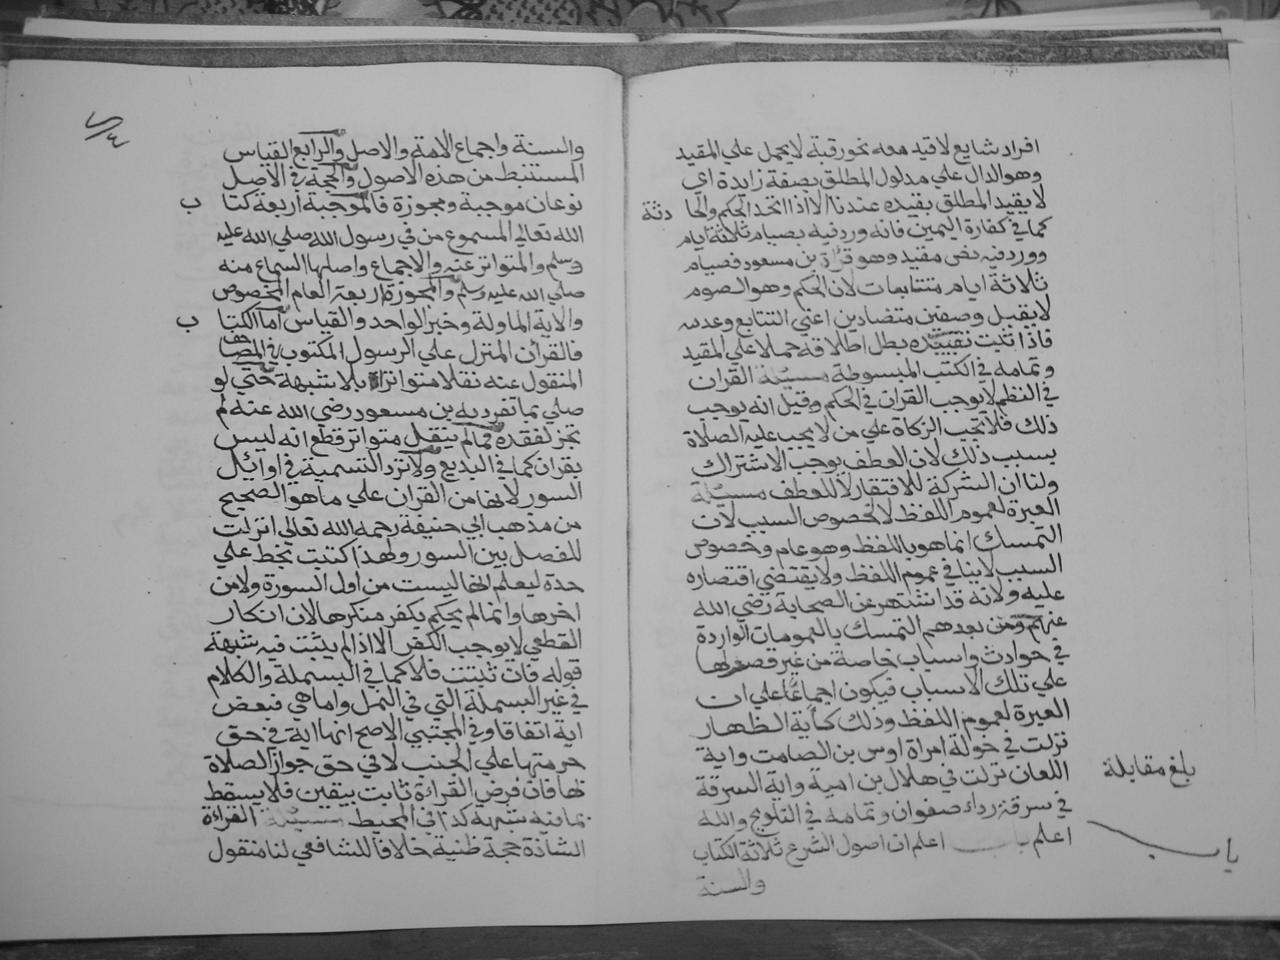 افراد شايع لا قيد معه نحو رقبة لا يحمل علي المقيد
وهو الدال علي مدلول المطلق بصفة زايدة اي
لا يقيد المطلق بقيده عندنا الا اذا اتحد الحكم والحا دثة
كما في كفارة اليمين فانه ورد فيه بصيام ثلاثة ايام
وورد فيه نص مقيد وهو قراة بن مسعود فصيام
ثلاثة ايام متتابعات لان الحكم وهو الصوم
لا يقبل وصفين متضادين اعني التتابع وعدمه
فاذا ثبت تقييده بطل اطلاقه حملا علي المقيد
وتمامه في الكتب المبسوطة مسئلة القران
في النظم لا يوجب القران في الحكم وقيل انه يوجب
ذلك فلا تجب الزكاة علي من لا يجب عليه الصلاة
بسبب ذلك لان العطف يوجب الاشتراك
ولنا ان الشركة للافتقار لا للعطف مسئلة
العبرة لعموم اللفظ لا لخصوص السبب لان
التمسك انما هو باللفظ وهو عام وخصوص
السبب لا ينافي عموم اللفظ ولا يقتضي اقتصاره
عليه ولانه قد اشتهر عن الصحابة رضي الله
عنهم ومن بعدهم التمسك بالعمومات الواردة
في حوادث واسباب خاصة من غير قصرلها
علي تلك الاسباب فيكون اجماعا علي ان
العبرة لعموم اللفظ وذلك كاية الظهار
نزلت في خولة امراة اوس بن الصامت واية
اللعان نزلت في هلال بن امية واية السرقة
في سرقة رداء صفوان وتمامه في التلويح والله
اعلم باب اعلم ان اصول الشرع ثلاثة الكتاب
والسنة
بلغ مقابلة
باب
والسنة واجماع الامة والاصل والرابع القياس
المستنبط من هذه الاصول والحجة في الاصل
نوعان موجبة ومجوزة فالموجبة اربعة كتا ب
الله تعالي المسموع من في رسول الله صلي الله عليه
وسلم والمتواتر عنه والاجماع واصلها السماع منه
صلي الله عليه وسلم والمجوزة اربعة العام المخصوص
والاية الماولة وخبر الواحد والقياس اما الكتا ب
فالقران المنزل علي الرسول المكتوب في المصاحف
المنقول عنه نقلا متواترا بلا شبهة حتي لو
صلي بما تفرد به بن مسعود رضي الله عنه لم
تجز لفقده فما لم ينقل متواتر قطع انه ليس
بقران كما في البديع ولا ترد التسمية في اوائل
السور لانها من القران علي ما هو الصحيح
من مذهب ابي حنيفة رحمه الله تعالي انزلت
للفصل بين السور ولهذا كتبت بخط علي
حدة ليعلم انها ليست من اول السورة ولا من
اخرها وانما لم يحكم بكفر منكرها لان انكار
القطعي لا يوجب الكفر الا اذا لم يثبت فيه شبهة
قوله فان ثبتت فلا كما في البسملة والكلام
في غير البسملة التي في النمل واما هي فبعض
اية اتفاقا وفي المجتبي الاصح انها اية في حق
حرمتها علي الجنب لا في حق جواز الصلاة
بها فان فرض القراءة ثابت بيقين فلا يسقط
بما فيه شبهة كذا في المحيط مسئلة القراءة
الشاذة حجة ظنية خلافا للشافعي لنا منقول